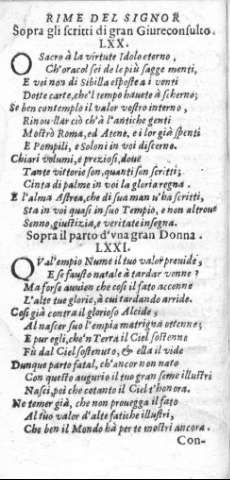 RIME DEL SIGNOR
Sopra gli scritti di gran Giureconsulto.
LXX.
O Sacro à la virtute Idolo eterno,
Ch'oracol sei de le più sagge menti,
E voi non di Sibilla esposte a i venti
Dotte carte, che'l tempo hauete à scherno;
Se ben contemplo il valor vostro interno,
Rinouellar ciò ch'à l'antiche genti
Mostrò Roma, ed Atene, e i lor già spenti
E Pompili, e Soloni in voi discerno.
Chiari volumi, e preziosi, doue
Tante vittorie son, quanti son scritti;
Cinta di palme in voi la gloria regna.
E l'alma Astrea, che di sua man u'hà scritti,
Sta in voi quasi in suo Tempio, e non altroue
Senno, giustizia, e veritate insegna.
Sopra il parto d'vna gran Donna.
LXXI.
QVal'empio Nume il tuo valor preuide,
E se fausto natale à tardar venne?
Ma forse auuien che cosi il fato accenne
L'alte tue glorie, à cui tardando arride.
Cosi già contra il glorioso Alcide,
Al nascer suo l'empia matrigna ottenne;
E pur egli, che'n Terra il Ciel sostenne
Fù dal Ciel sostenuto, & ella il vide
Dunque parto fatal, ch'ancor non nato
Con questo augurio il tuo gran seme illustri
Nasci, poi che cotanto il Ciel t'honora.
Ne temer già, che non prouegga il fato
Al tuo valor d'alte fatiche illustri,
Che ben il Mondo hà per te mostri ancora.
Con-